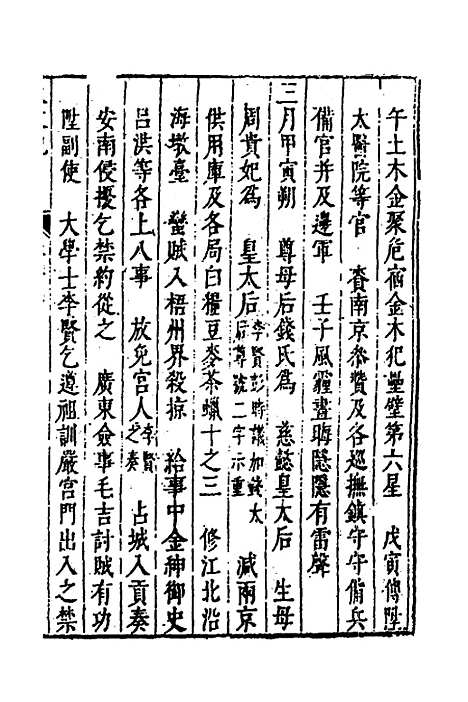 午土木金聚危宿金木犯壘壁第六星　戊寅傳陞
太醫院等官　賚南京叅贊及各巡撫鎮守守備兵
備官并及邊軍　壬子風霾晝晦隱隱有雷聲
三月甲寅朔　尊母后錢氏為　慈懿皇太后　生母
周貴妃為　皇太后李賢彭時議加錢太后尊號二字示重　減兩京
供用庫及各局白糧豆麥茶蠟十之三　修江北沿
海墩臺　蠻賊入梧州界殺掠　給事中金紳御史
呂洪等各上八事　放免宮人李賢之奏　占城入貢奏
安南侵擾乞禁約從之　廣東僉事毛吉討賊有功
陞副使　大學士李賢乞遵祖訓嚴宮門出入之禁